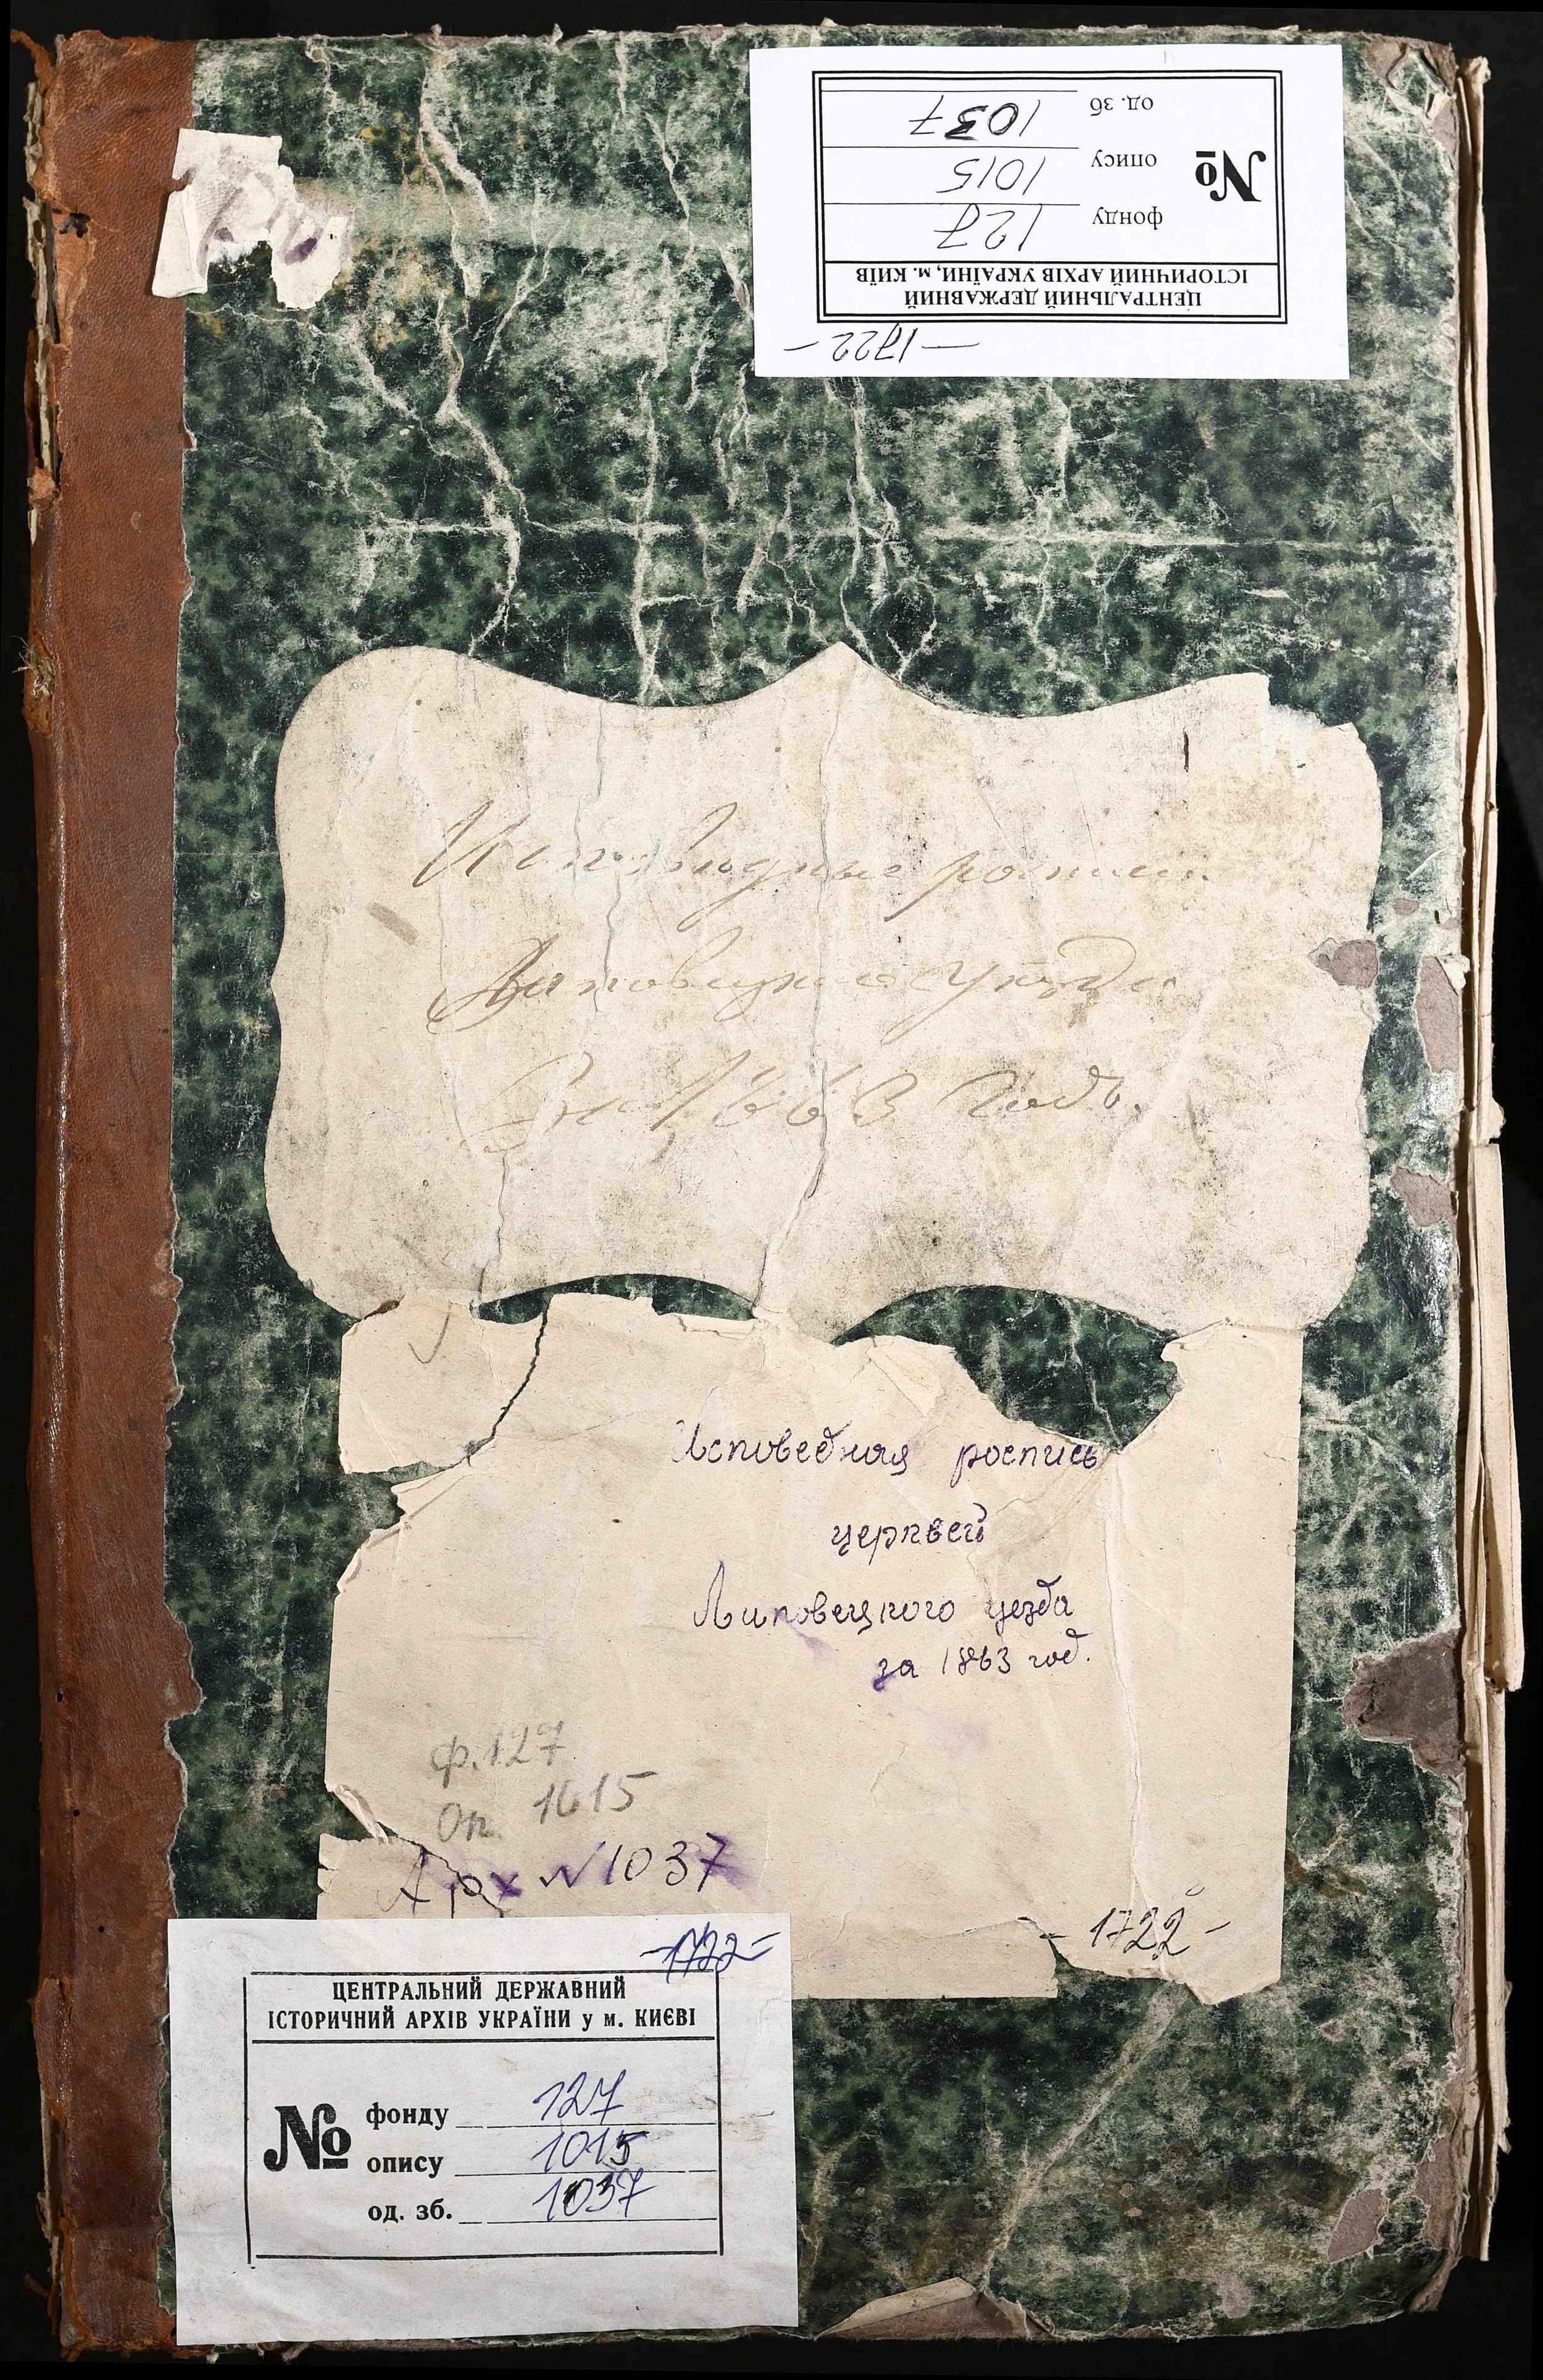 ЦЕНТРАЛЬНИЙ ДЕРЖАВНИЙ
ІСТОРИЧНИЙ АРХІВ УКРАЇНИ, м. КИЇВ
№
фонду 127
опису 1015
од. зб 1037
—1722-
Исповедные росписи
Липовецкаго уезда
За 1863 годъ.
Исповедная роспись
церквей
Липовецкого уезда
за 1863 год.
ф. 127
Оп. 1015
Арх №1037
- 1722 -
-1722-
ЦЕНТРАЛЬНИЙ ДЕРЖАВНИЙ
ІСТОРИЧНИЙ АРХІВ УКРАЇНИ у м. КИЄВІ
№
фонду 127
опису 1015
од. зб. 1037